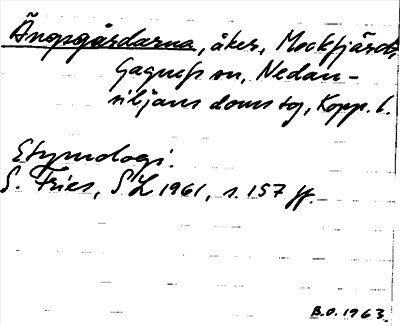 Änopgårdarna, åker, Mockfjärds,
Gagnefs sn, Nedan-
siljans doms tg, Kopp. l.
Etymologi.
S. Fries, SL 1961, s. 157 ff.
B.O. 1963.